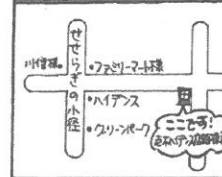 せせらぎの小径
川信様
・ファミリーマート様
・ハイデンス
・グリーンパーク
ここです!